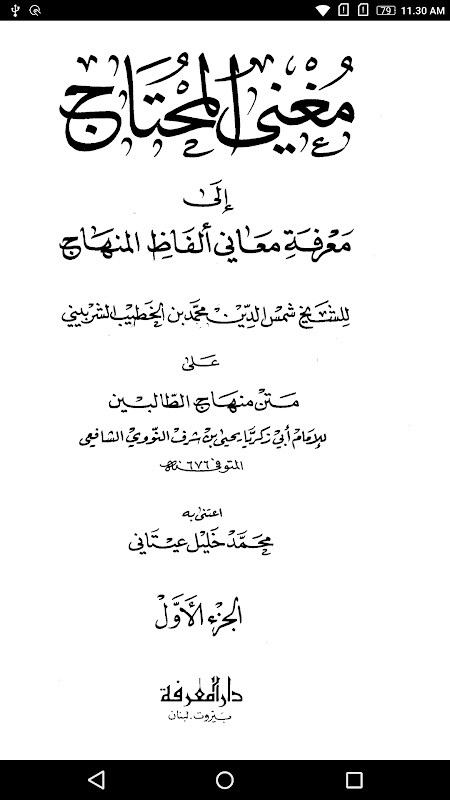 79 11.30 AM
مُغْنِي المُحْتَاج
إِلَىٰ
مَعْرِفَةِ مَعَانِي أَلفَاظِ المنهَاج
للشَّيخ شمس الدِّين محمَّد بن الخطيب الشربيني
عَلىٰ
مَتن منهاج الطَّالبين
للإمَام أبي زكريَّا يحيى بن شرف النَّووي الشافعي
المتوفى ٦٧٦ سنة هـ
اعتنى به
محمَّد خَليل عيتَاني
الجزء الأوَّل
دار المعرفة
بَيروت ـ لبنان